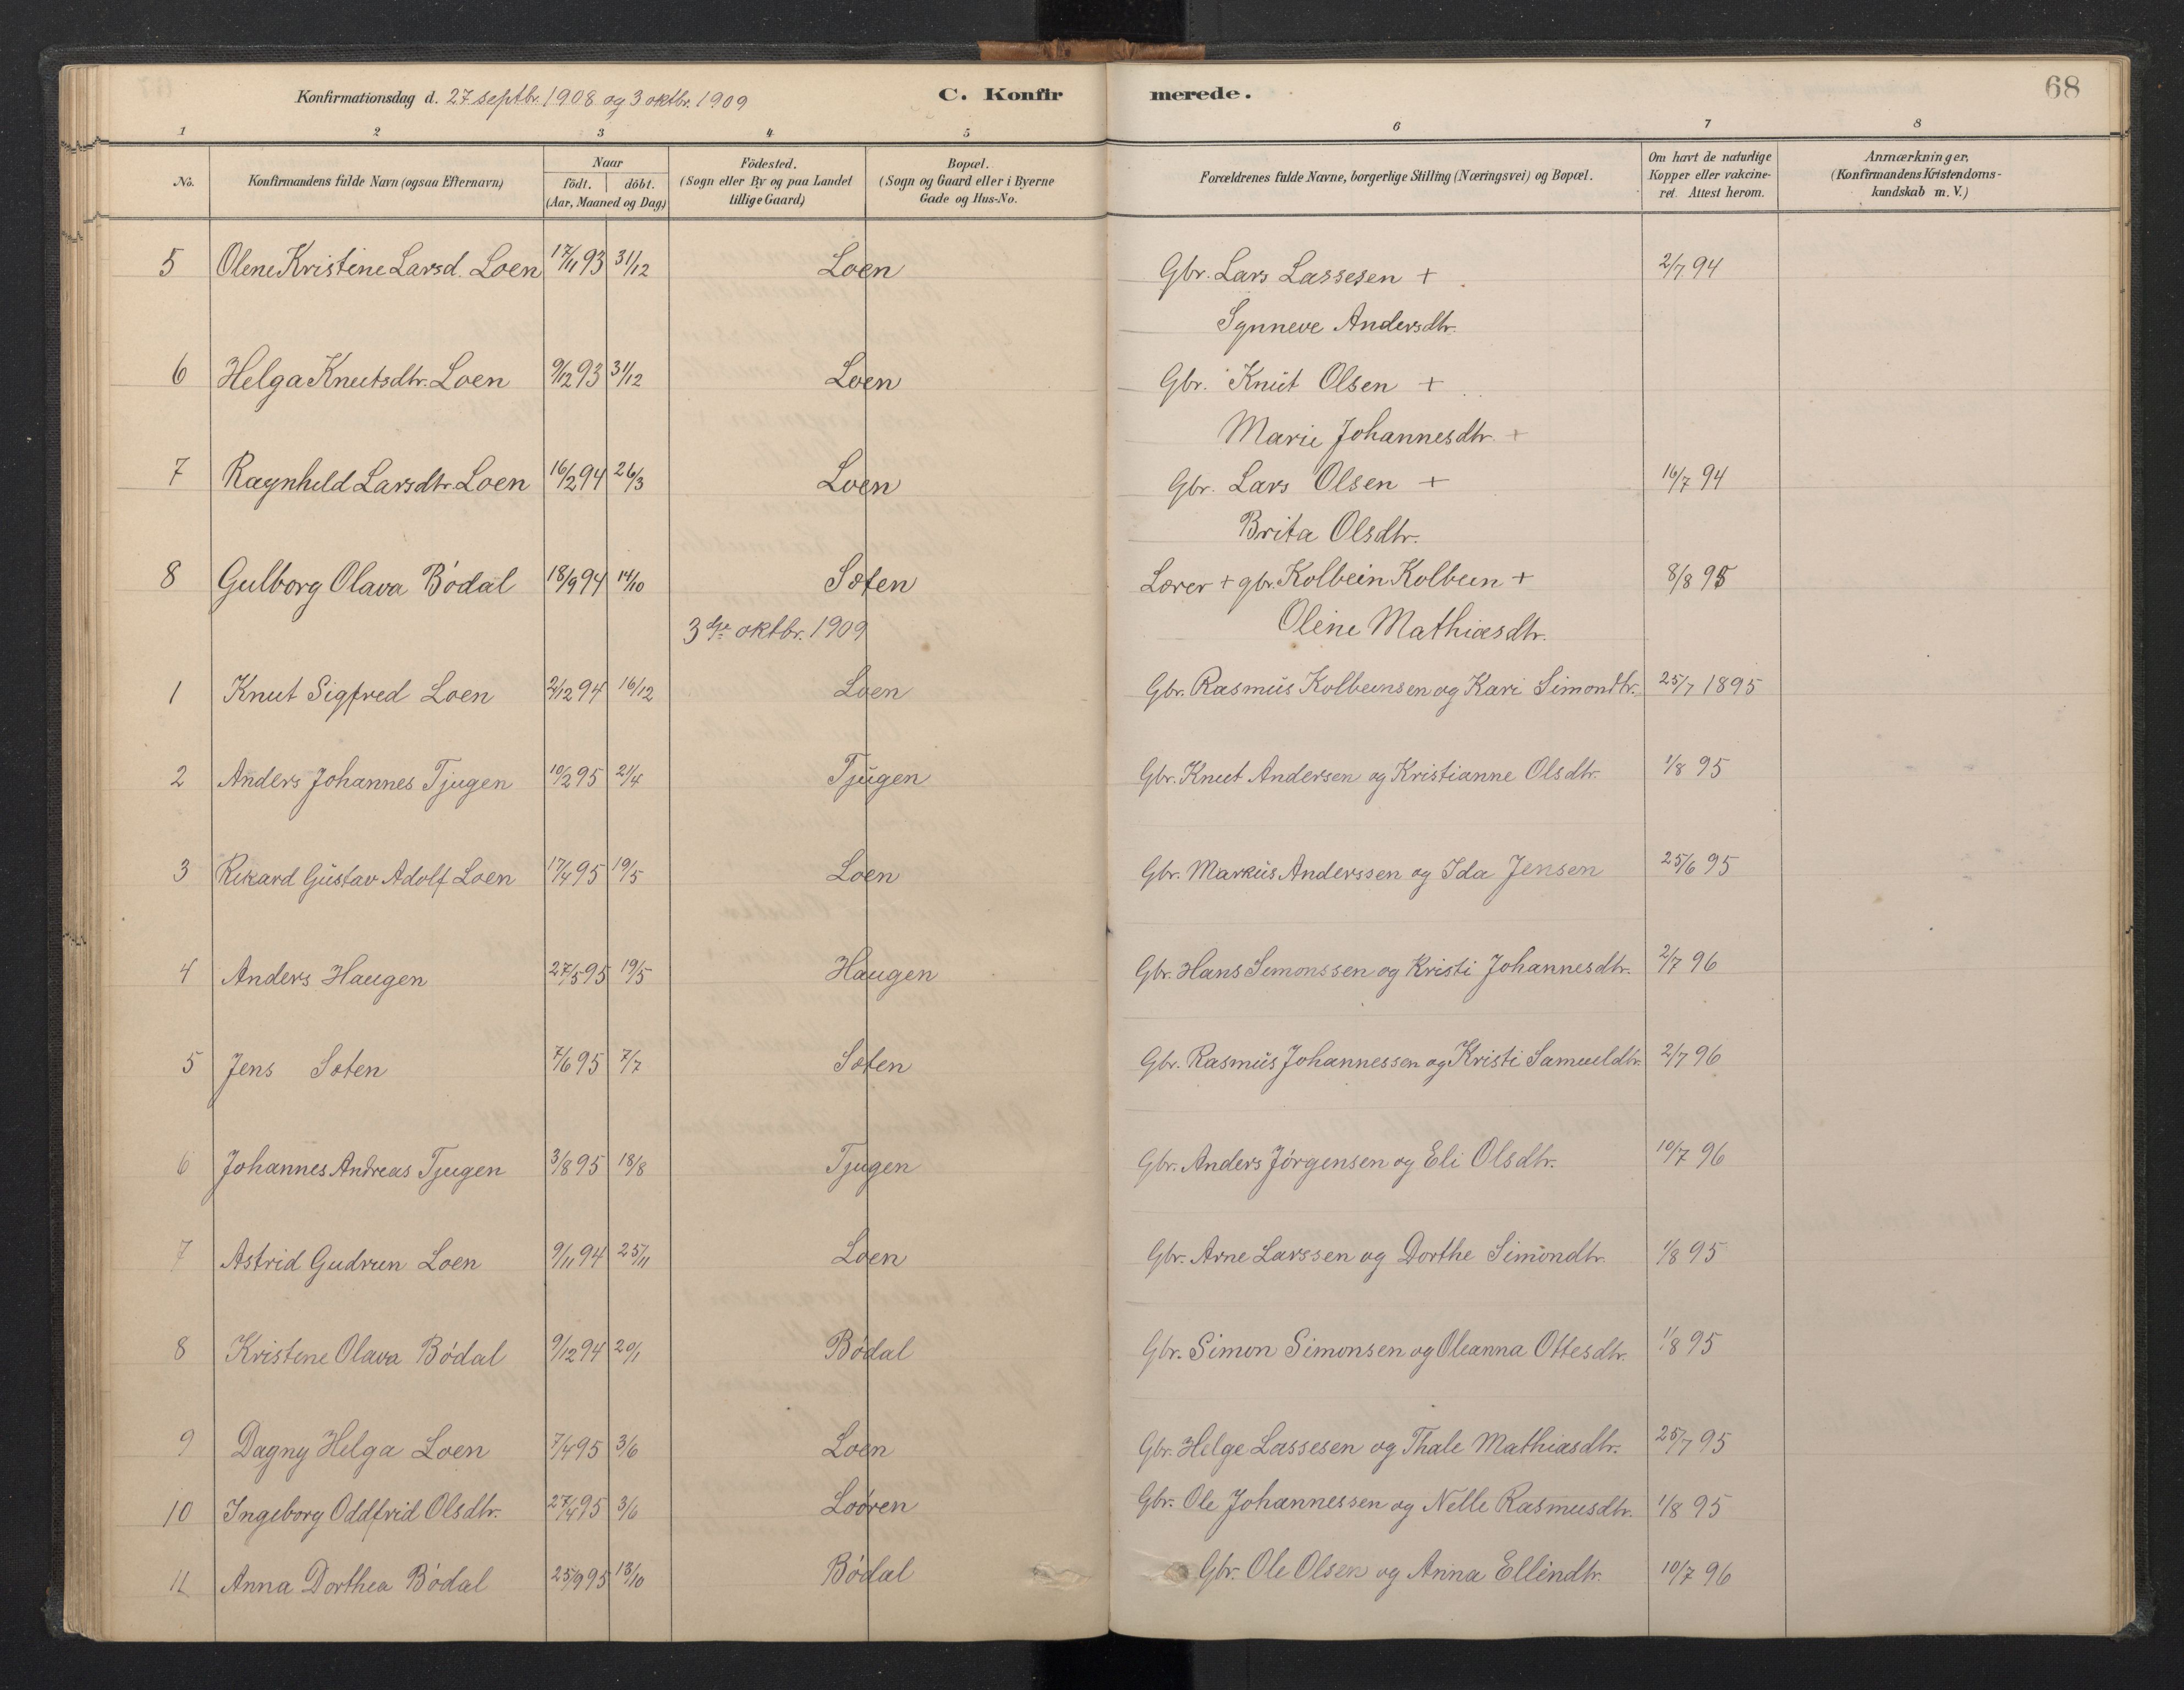 68
Konfirmationsdag d. 27 septbr. 1908 og 3 oktbr. 1909 C. Konfirmerede.
1 2 3 4 5 6 7 8
No. Konfirmandens fulde Navn (ogsaa Efternavn) Naar födt. döbt. (Aar, Maaned og Dag) Födested. (Sogn eller By og paa Landet tillige Gaard) Bopæl. (Sogn og Gaard eller i Byerne Gade og Hus-No. Forældrenes fulde Navne, borgerlige Stilling (Næringsvei) og Bopæl. Om havt de naturlige Kopper eller vakcineret. Attest herom. Anmærkninger. (Konfirmandens Kristendomskundskab m. V.)
5 Olene Kristine Larsd. Loen 17/11 93 31/12 Loen Gbr. Lars Lassesen +  2/7 94
Synneve Andersdtr.
6 Helga Knutsdtr. Loen 9/12 93 31/12 Loen Gbr. Knut Olsen +
Marie Johannesdtr. +
7 Ragnhild Larsdtr. Loen 16/2 94 26/3 Loen Gbr. Lars Olsen + 16/7 94
Brita Olsdtr.
8 Gulborg Olava Bødal 18/9 94 14/10 Sæten Lærer + gbr. Kolbein Kolbein + 8/8 95
3die oktbr. 1909 Oline Mathiasdtr.
1 Knut Sigfred Loen 2/12 94 16/12 Loen Gbr. Rasmus Kolbeinsen og Kari Simondtr. 25/7 1895
2 Anders Johannes Tjugen 10/2 95 21/4 Tjugen Gbr. Knut Andersen og Kristianne Olsdtr. 1/8 95
3 Rikard Gustav Adolf Loen 17/4 95 19/5 Loen Gbr. Markus Anderssen og Ida Jensen 25/6 95
4 Anders Haugen 27/5 95 19/5 Haugen Gbr. Hans Simonssen og Kristi Johannesdtr. 2/7 96
5 Jens Sæten 7/6 95 7/7 Sæten Gbr. Rasmus Johannessen og Kristi Samueldtr. 2/7 96
6 Johannes Andreas Tjugen 3/8 95 18/8 Tjugen Gbr. Anders Jørgensen og Eli Olsdtr. 10/7 96
7 Astrid Gudrun Loen 9/11 94 25/11 Loen Gbr. Arne Larssen og Dorthe Simondtr. 1/8 95
8 Kristine Olava Bødal 9/12 94 20/1 Bødal Gbr. Simon Simonsen og Oleanna Ottesdtr. 1/8 95
9 Dagny Helga Loen 7/4 95 3/6 Loen Gbr. Helge Lassesen og Thale Mathiasdtr. 25/7 95
10 Ingeborg Oddfrid Olsdtr. 27/4 95 3/6 Looren Gbr. Ole Johannessen og Nelle Rasmusdtr. 1/8 95
11 Anna Dorthea Bødal 25/9 95 13/10 Bødal Gbr. Ole Olsen og Anna Ellindtr. 10/7 96